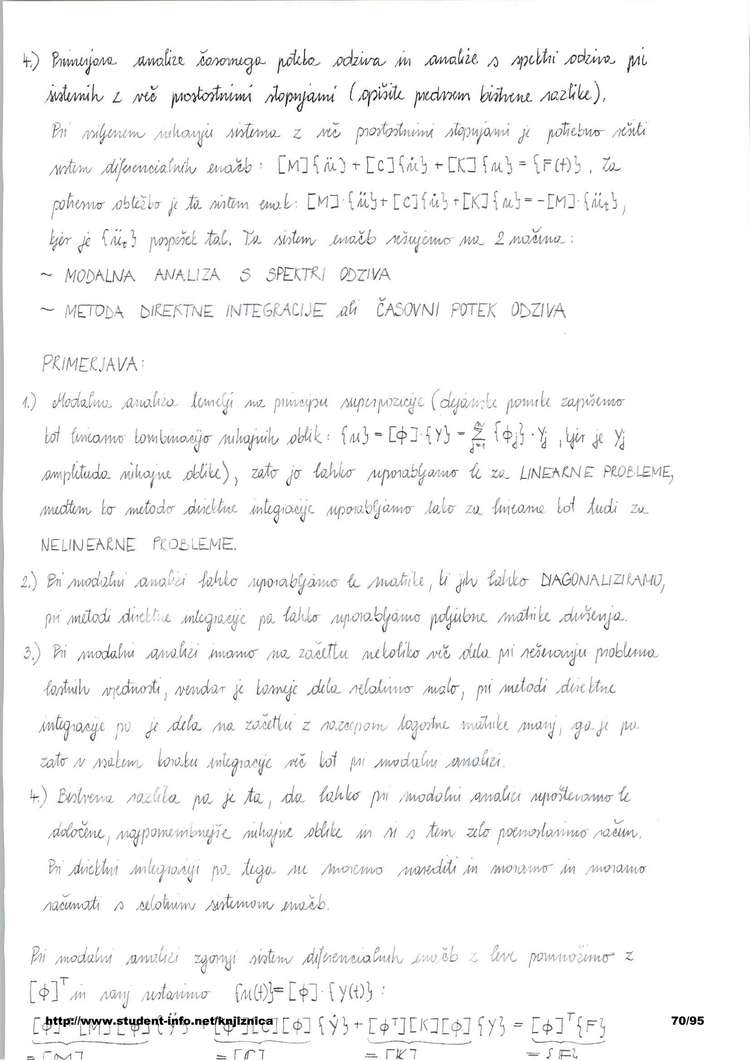 4.) Primerjava analize časovnega poteka odziva in analize s spektri odziva pri
sistemih z več prostostnimi stopnjami (opišite predvsem bistvene razlike).
Pri vsiljenem nihanju sistema z več prostostnimi stopnjami je potrebno rešiti
sistem diferencialnih enačb: [M]{ü} + [C]{u̇} + [K]{u} = {F(t)}. Za
potresno obtežbo je ta sistem enak: [M]·{ü} + [C]{u̇} + [K]{u} = -[M]·{üt},
kjer je {üt} pospešek tal. Ta sistem enačb rešujemo na 2 načina:
~ MODALNA ANALIZA S SPEKTRI ODZIVA
~ METODA DIREKTNE INTEGRACIJE ali ČASOVNI POTEK ODZIVA
PRIMERJAVA:
1.) Modalna analiza temelji na principu superpozicije (dejanske pomike zapišemo
kot linearno kombinacijo nihajnih oblik: {u} = [ϕ]·{Y} = Σ {ϕj}·Yj, kjer je Yj
amplituda nihajne oblike), zato jo lahko uporabljamo le za LINEARNE PROBLEME,
medtem ko metodo direktne integracije uporabljamo tako za linearne kot tudi za
NELINEARNE PROBLEME.
2.) Pri modalni analizi lahko uporabljamo le matrike, ki jih lahko DIAGONALIZIRAMO,
pri metodi direktne integracije pa lahko uporabljamo poljubne matrike dušenja.
3.) Pri modalni analizi imamo na začetku nekoliko več dela pri reševanju problema
lastnih vrednosti, vendar je kasneje dela relativno malo, pri metodi direktne
integracije pa je dela na začetku z razcepom togostne matrike manj, ga je pa
zato v vsakem koraku integracije več kot pri modalni analizi.
4.) Bistvena razlika pa je ta, da lahko pri modalni analizi upoštevamo le
določene, najpomembnejše nihajne oblike in si s tem zelo poenostavimo račun.
Pri direktni integraciji pa tega ne moremo narediti in moramo in moramo
računati s celotnim sistemom enačb.
Pri modalni analizi zgornji sistem diferencialnih enačb z leve pomnožimo z
[ϕ]ᵀ in vanj vstavimo {u(t)} = [ϕ]·{Y(t)}:
[ϕ]ᵀ[M][ϕ]{Ÿ} + [ϕ]ᵀ[C][ϕ]{Ẏ} + [ϕᵀ][K][ϕ]{Y} = [ϕ]ᵀ{F}
http://www.student-info.net/knjiznica 70/95
= [M] = [C] = [K] = {F}